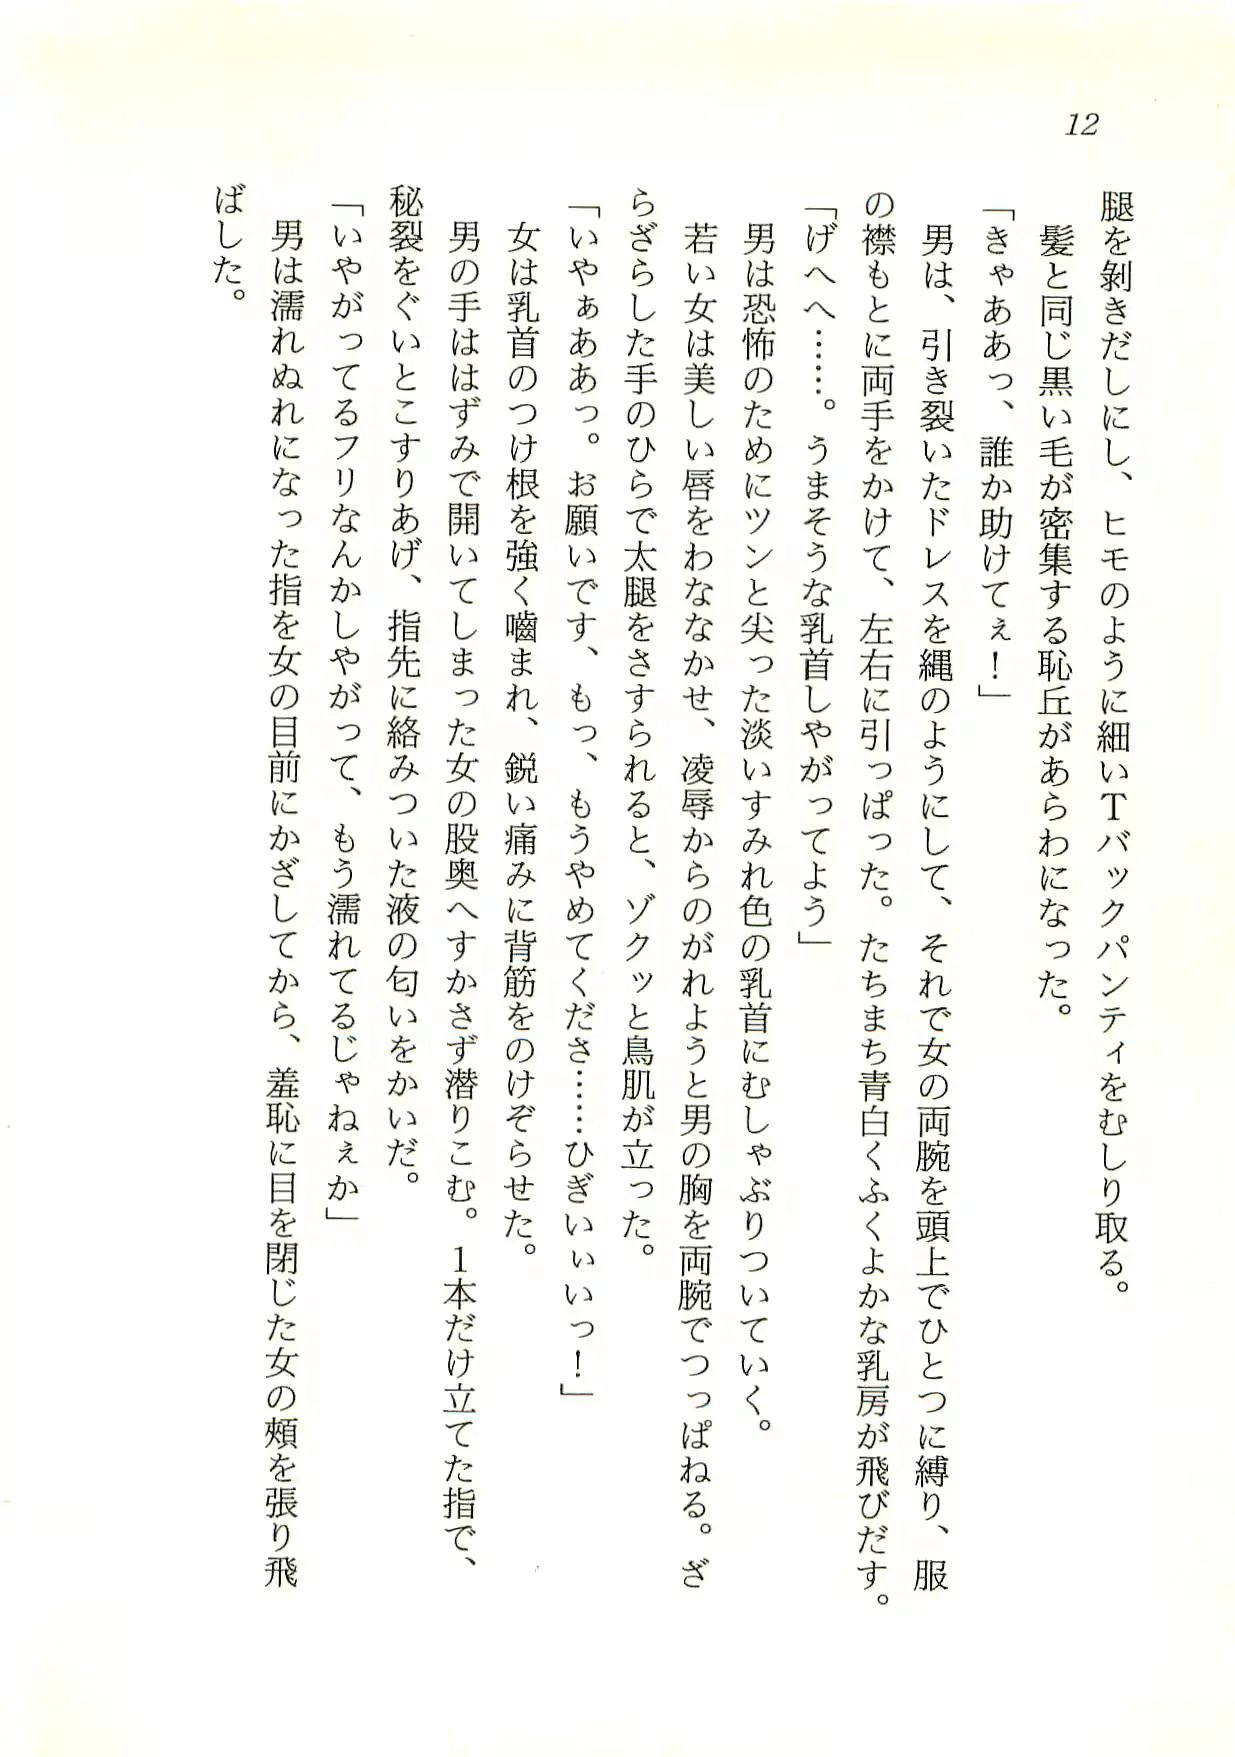 12
腿を剝きだしにし、ヒモのように細いTバックパンティをむしり取る。
髪と同じ黒い毛が密集する恥丘があらわになった。
「きゃああっ、誰か助けてぇ！」
男は、引き裂いたドレスを縄のようにして、それで女の両腕を頭上でひとつに縛り、服
の襟もとに両手をかけて、左右に引っぱった。たちまち青白くふくよかな乳房が飛びだす。
「げへへ……。うまそうな乳首しやがってよう」
男は恐怖のためにツンと尖った淡いすみれ色の乳首にむしゃぶりついていく。
若い女は美しい唇をわななかせ、凌辱からのがれようと男の胸を両腕でつっぱねる。ざ
らざらした手のひらで太腿をさすられると、ゾクッと鳥肌が立った。
「いやぁああっ。お願いです、もっ、もうやめてくださ……ひぎいぃいっ！」
女は乳首のつけ根を強く嚙まれ、鋭い痛みに背筋をのけぞらせた。
男の手ははずみで開いてしまった女の股奥へすかさず潜りこむ。1本だけ立てた指で、
秘裂をぐいとこすりあげ、指先に絡みついた液の匂いをかいだ。
「いやがってるフリなんかしやがって、もう濡れてるじゃねぇか」
男は濡れぬれになった指を女の目前にかざしてから、羞恥に目を閉じた女の頰を張り飛
ばした。